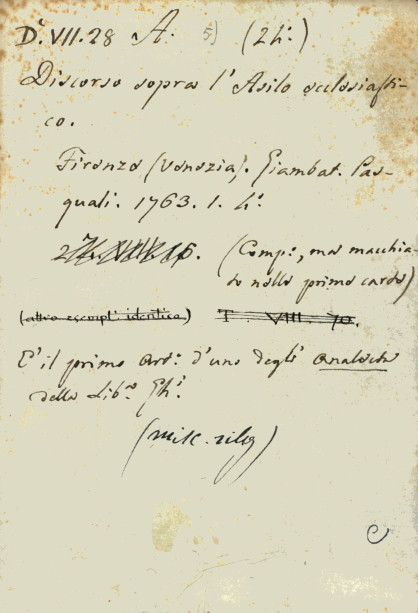 D.r VII. 28 A. 5) (2 h.)
Discorso sopra l'Asilo ecclesiasti-
co.
Firenze (Venezia). Giambat. Pas-
quali. 1763. 1. h.
(Comp., ma macchia-
to nelle prime carte)
(altro esempl. identico) I. VIII. 70.
E' il primo art. d'uno degli analecta
della Lib.
(misc. rileg)